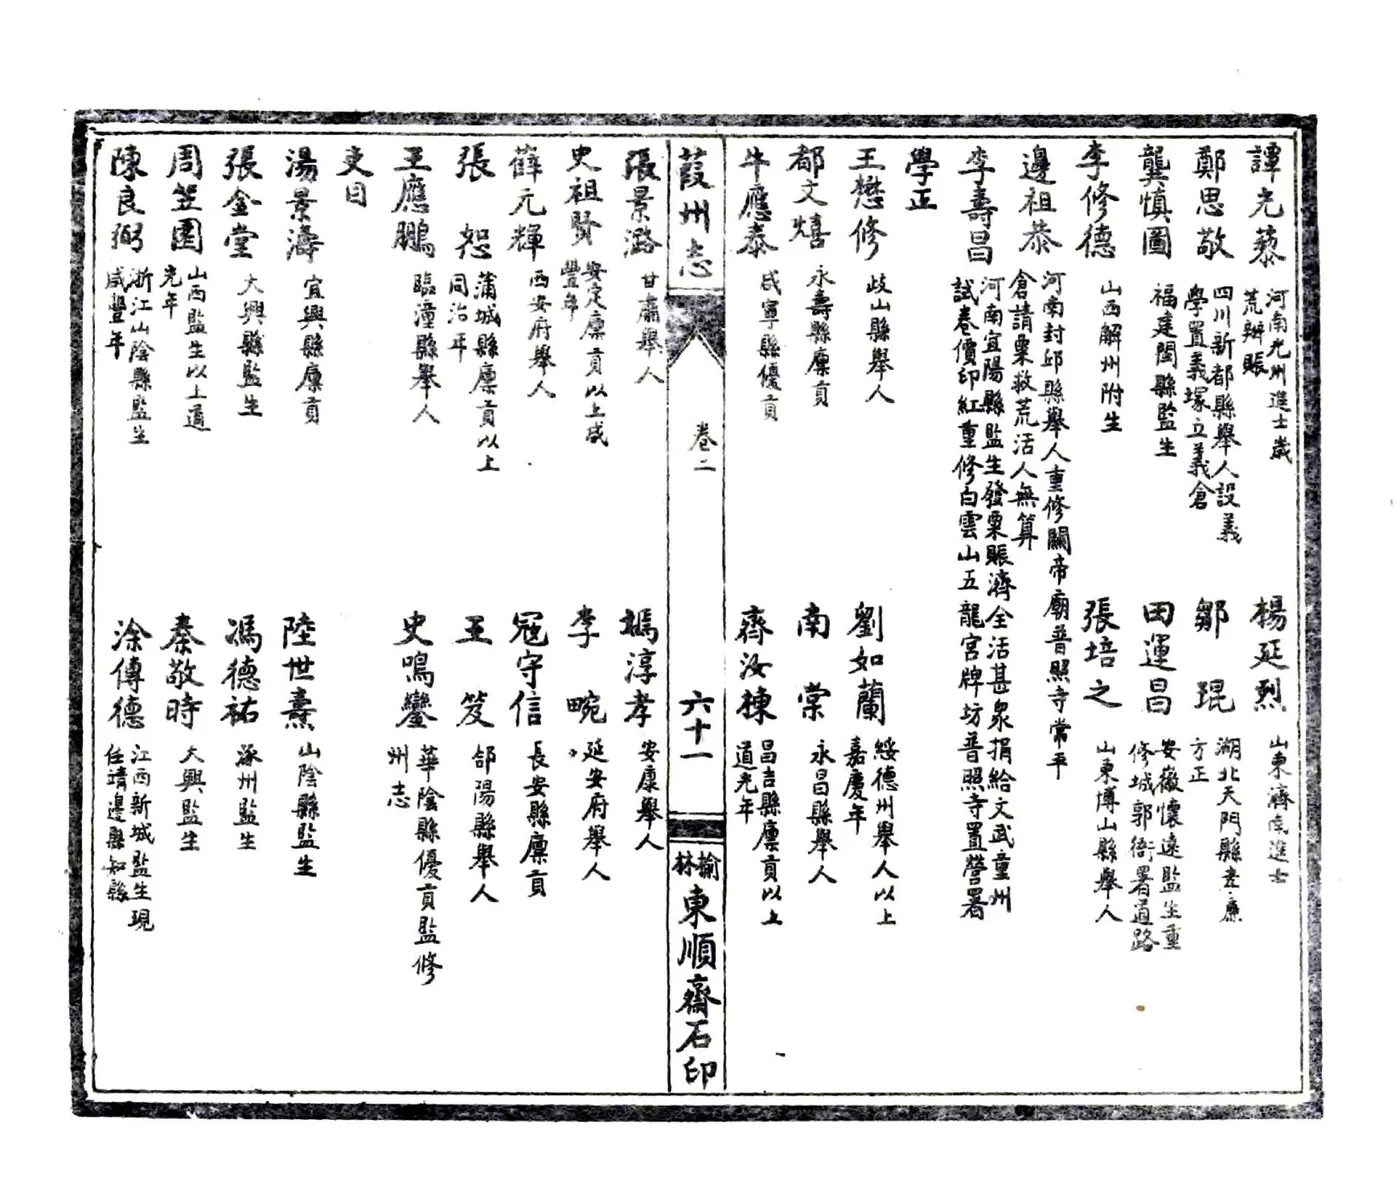 譚光藜 河南光州進士歲
荒辦賬
楊延烈 山東濟南進士
鄭思敬 四川新都縣舉人設義
學置義塚立義倉
鄒琨 湖北天門縣孝廉
方正
龔慎圖 福建閩縣監生
田運昌 安徽懷遠監生重
修城郭衙署道路
李修德 山西解州附生
張培之 山東博山縣舉人
邊祖恭 河南封邱縣舉人重修關帝廟普照寺常平
倉請粟救荒活人無算
李壽昌 河南宜陽縣監生發粟賬濟全活甚衆捐給文武童州
試卷價印紅重修白雲山五龍宮牌坊普照寺置營署
學正
王懋修 岐山縣舉人
劉如蘭 綏德州舉人以上
嘉慶年
都文熺 永壽縣廪貢
南棠 永昌縣舉人
牛應泰 咸寧縣優貢
齊汝棟 昌吉縣廪貢以上
道光年
葭州志
卷二
六十一
榆林東順齋石印
張景潞 甘肅舉人
馮淳孝 安康舉人
史祖賢 安定廪貢以上咸
豐年
李畹 延安府舉人
薛元輝 西安府舉人
冦守信 長安縣廪貢
張恕 蒲城縣廪貢以上
同治年
王笈 郃陽縣舉人
王應鵬 臨潼縣舉人
史鳴鑾 華陰縣優貢監修
州志
吏目
湯景濤 宜興縣廪貢
陸世熹 山陰縣監生
張金堂 大興縣監生
馮德祐 涿州監生
周笠園 山西監生以上道
光年
秦敬時 大興監生
陳良弼 浙江山陰縣監生
咸豐年
涂傅德 江西新城監生現
任靖邊縣知縣